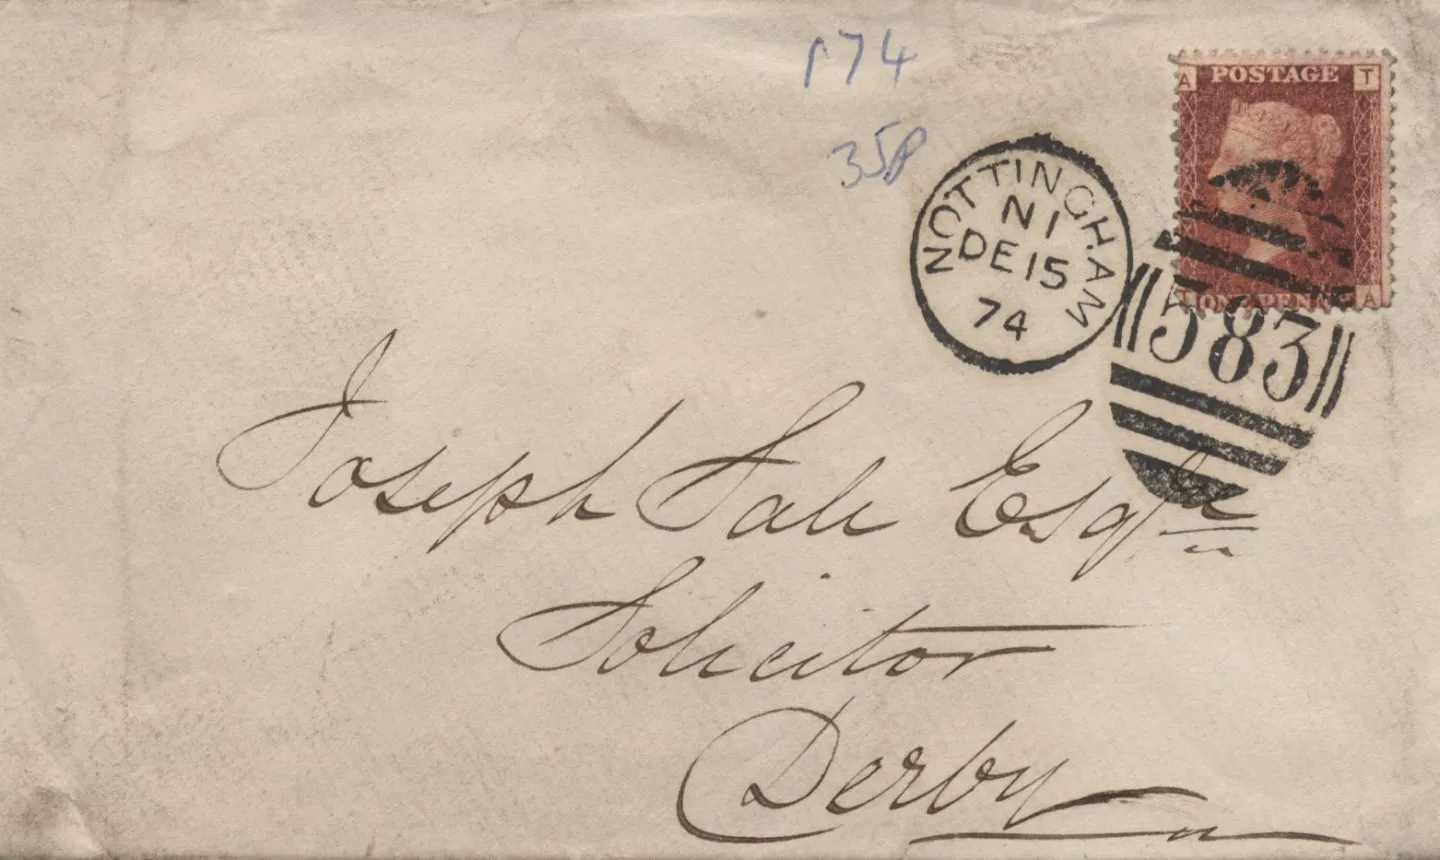 174
35p
A POSTAGE T
T ONE PENNY A
NOTTINGHAM
N1
DE 15
74
583
Joseph Sale Esqre
Solicitor
Derby